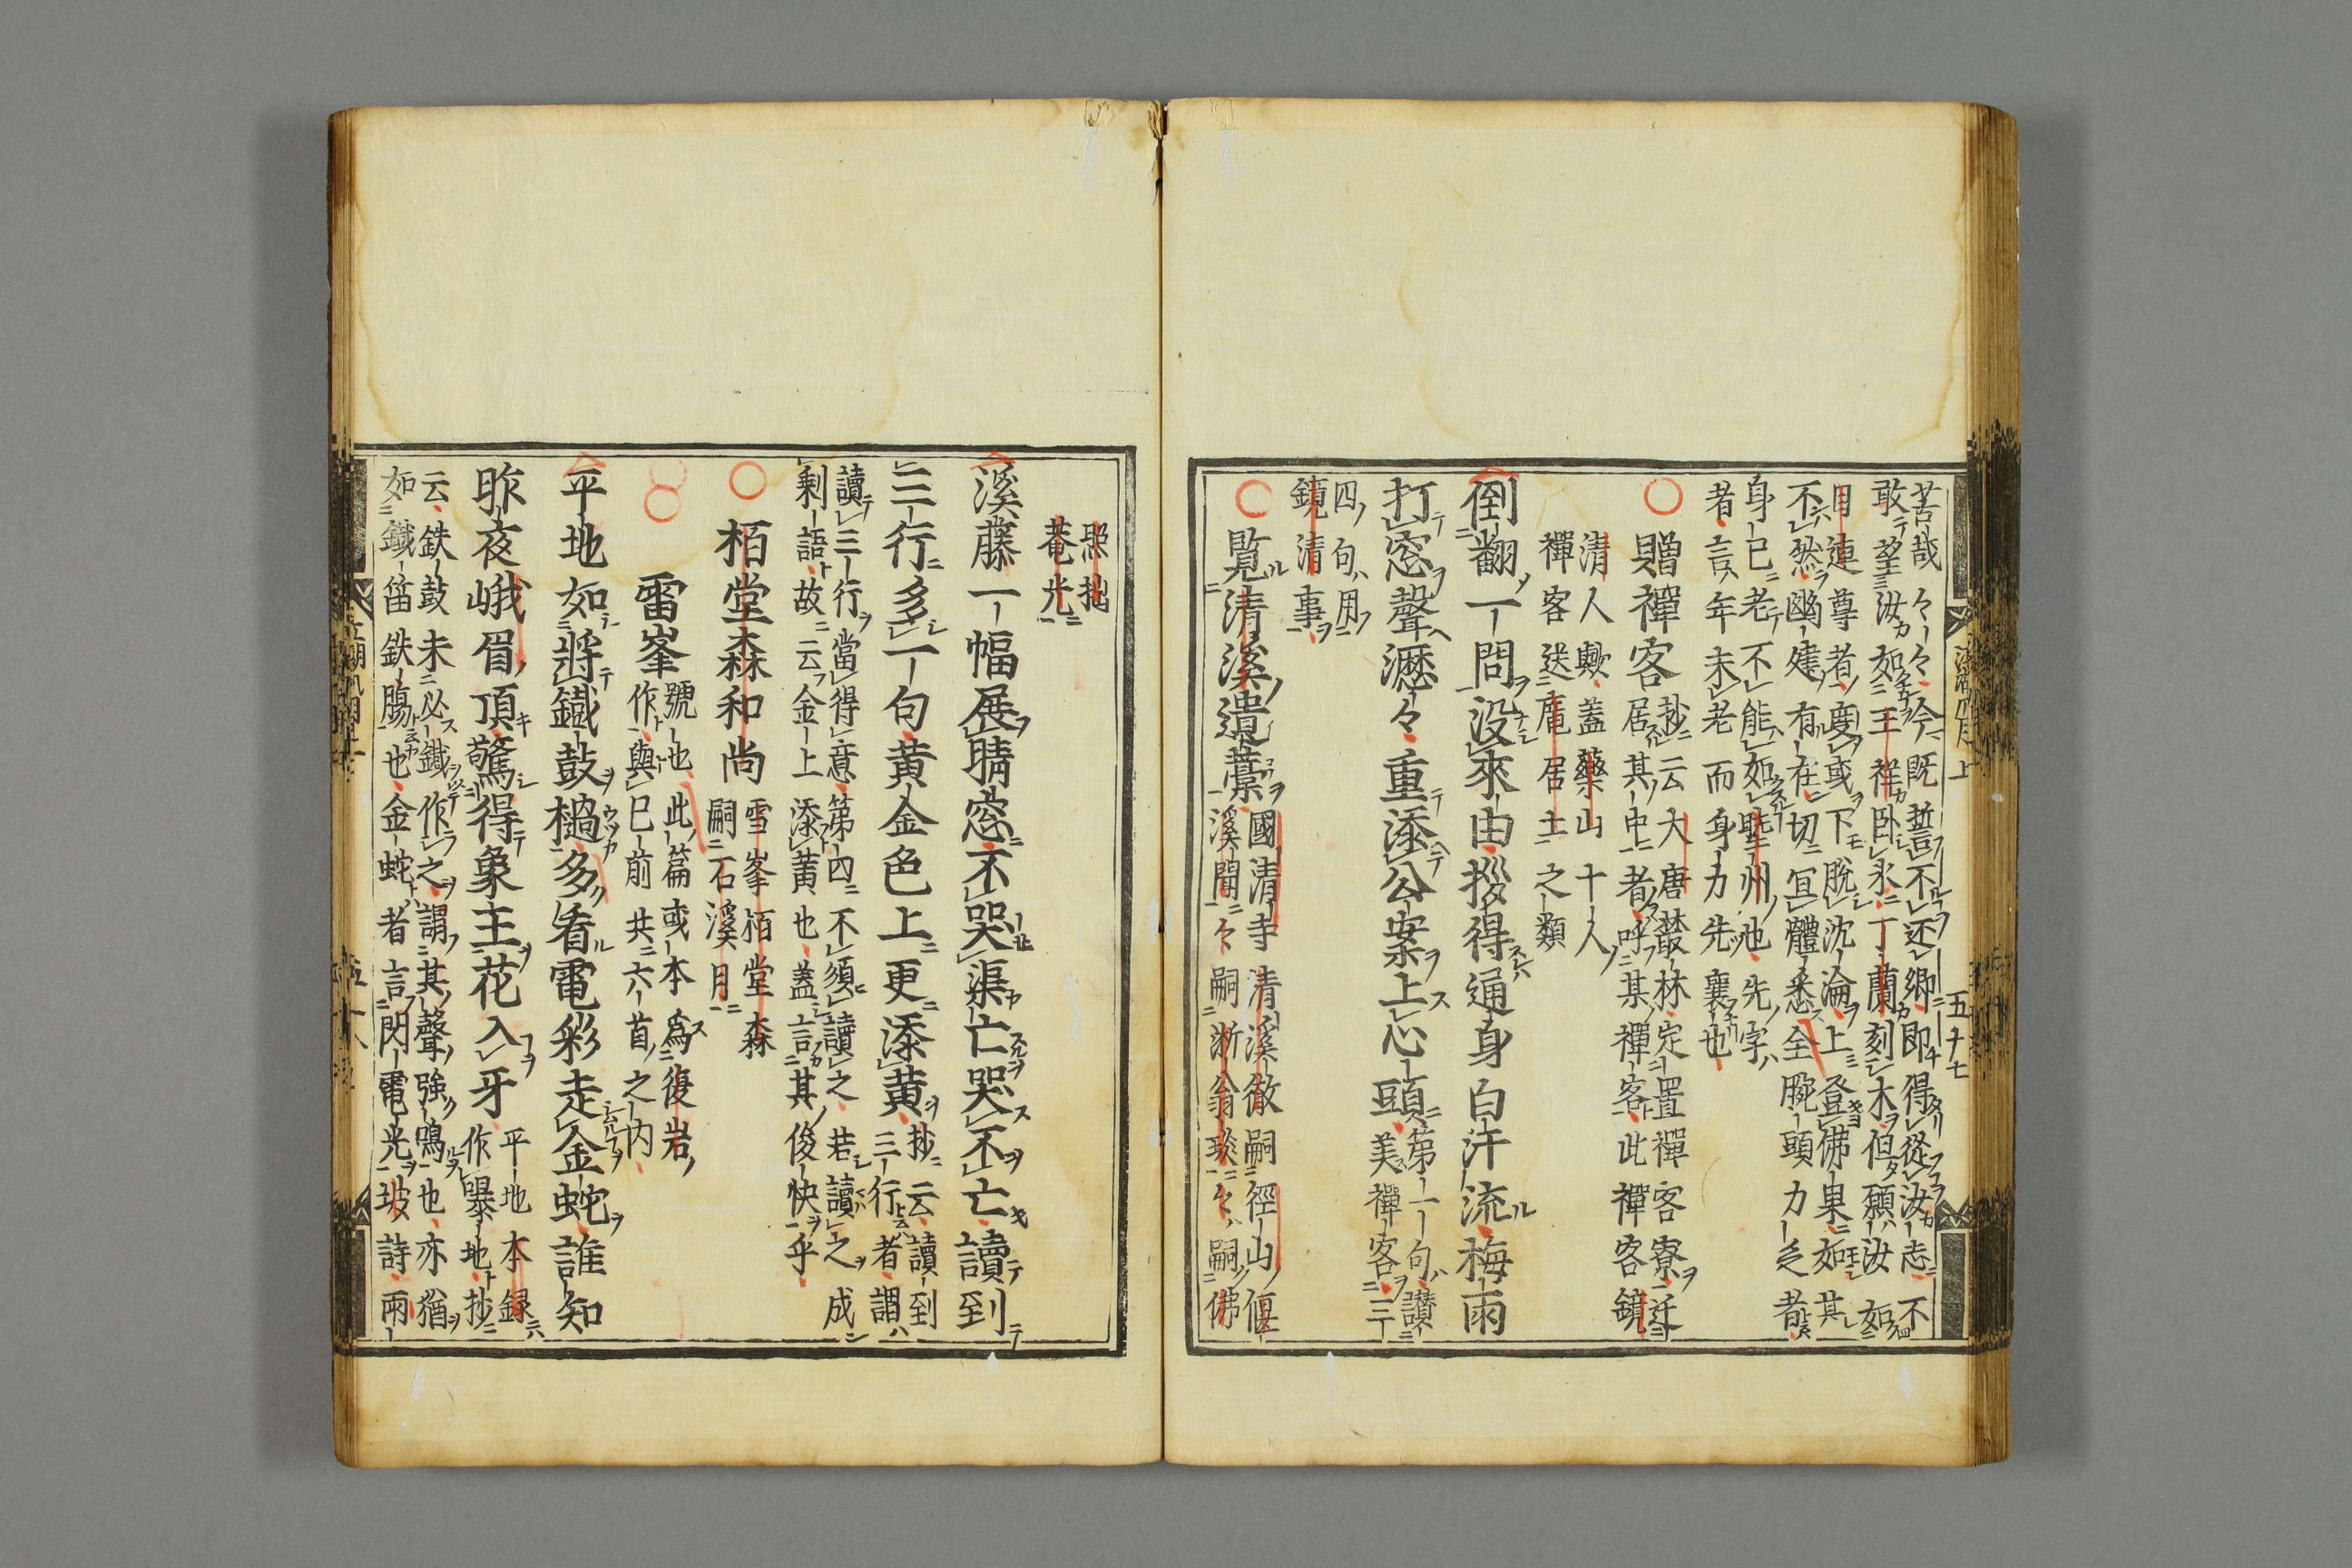 苦哉々々今既誓不还郷即得從汝志不
敢望汝如王祥卧氷丁蘭刻木但願汝如
目連尊者度或下脱沈淪上登佛果如其
不然幽有在切冝體悉全腕頭力乏者
身已老不能如睦州也先字
者言年未老而身力先襄也
贈禪客
抄云大唐叢林定置禪客寮迁
居其中者呼某禪客此禪客鏡
清人歟蓋藥山十人
禪客送龐居士之類
倒翻一問没來由拶得通身白汗流梅雨
打窓聲瀝々重添公案上心頭
第一句讃
美禪客三
四句用
鏡清事
覧清溪遺藁
國清寺清溪徹嗣徑山偃
溪聞々嗣浙翁琰々嗣佛
照拙
菴光
溪藤一幅展晴窓不哭渠亡哭不亡讀到
三行多一句黄金色上更添黄
抄云讀到
三行者謂
讀三行當得意第四不須讀之若讀之成
剰語故云金上添黄也蓋言其俊快乎
栢堂森和尚
雪峯栢堂森
嗣石溪月
雷峯
號也此篇或本為復岩
作與巳前共六首之内
平地如將鐵鼓檛多看電彩走金蛇誰知
昨夜峨眉頂驚得象王花入牙
平地本録
作曝地抄
云鉄鼓未必鐵作之謂其聲強鳴也亦猶
如鐵笛鉄腸也金蛇者言閃電光坡詩雨
五十七